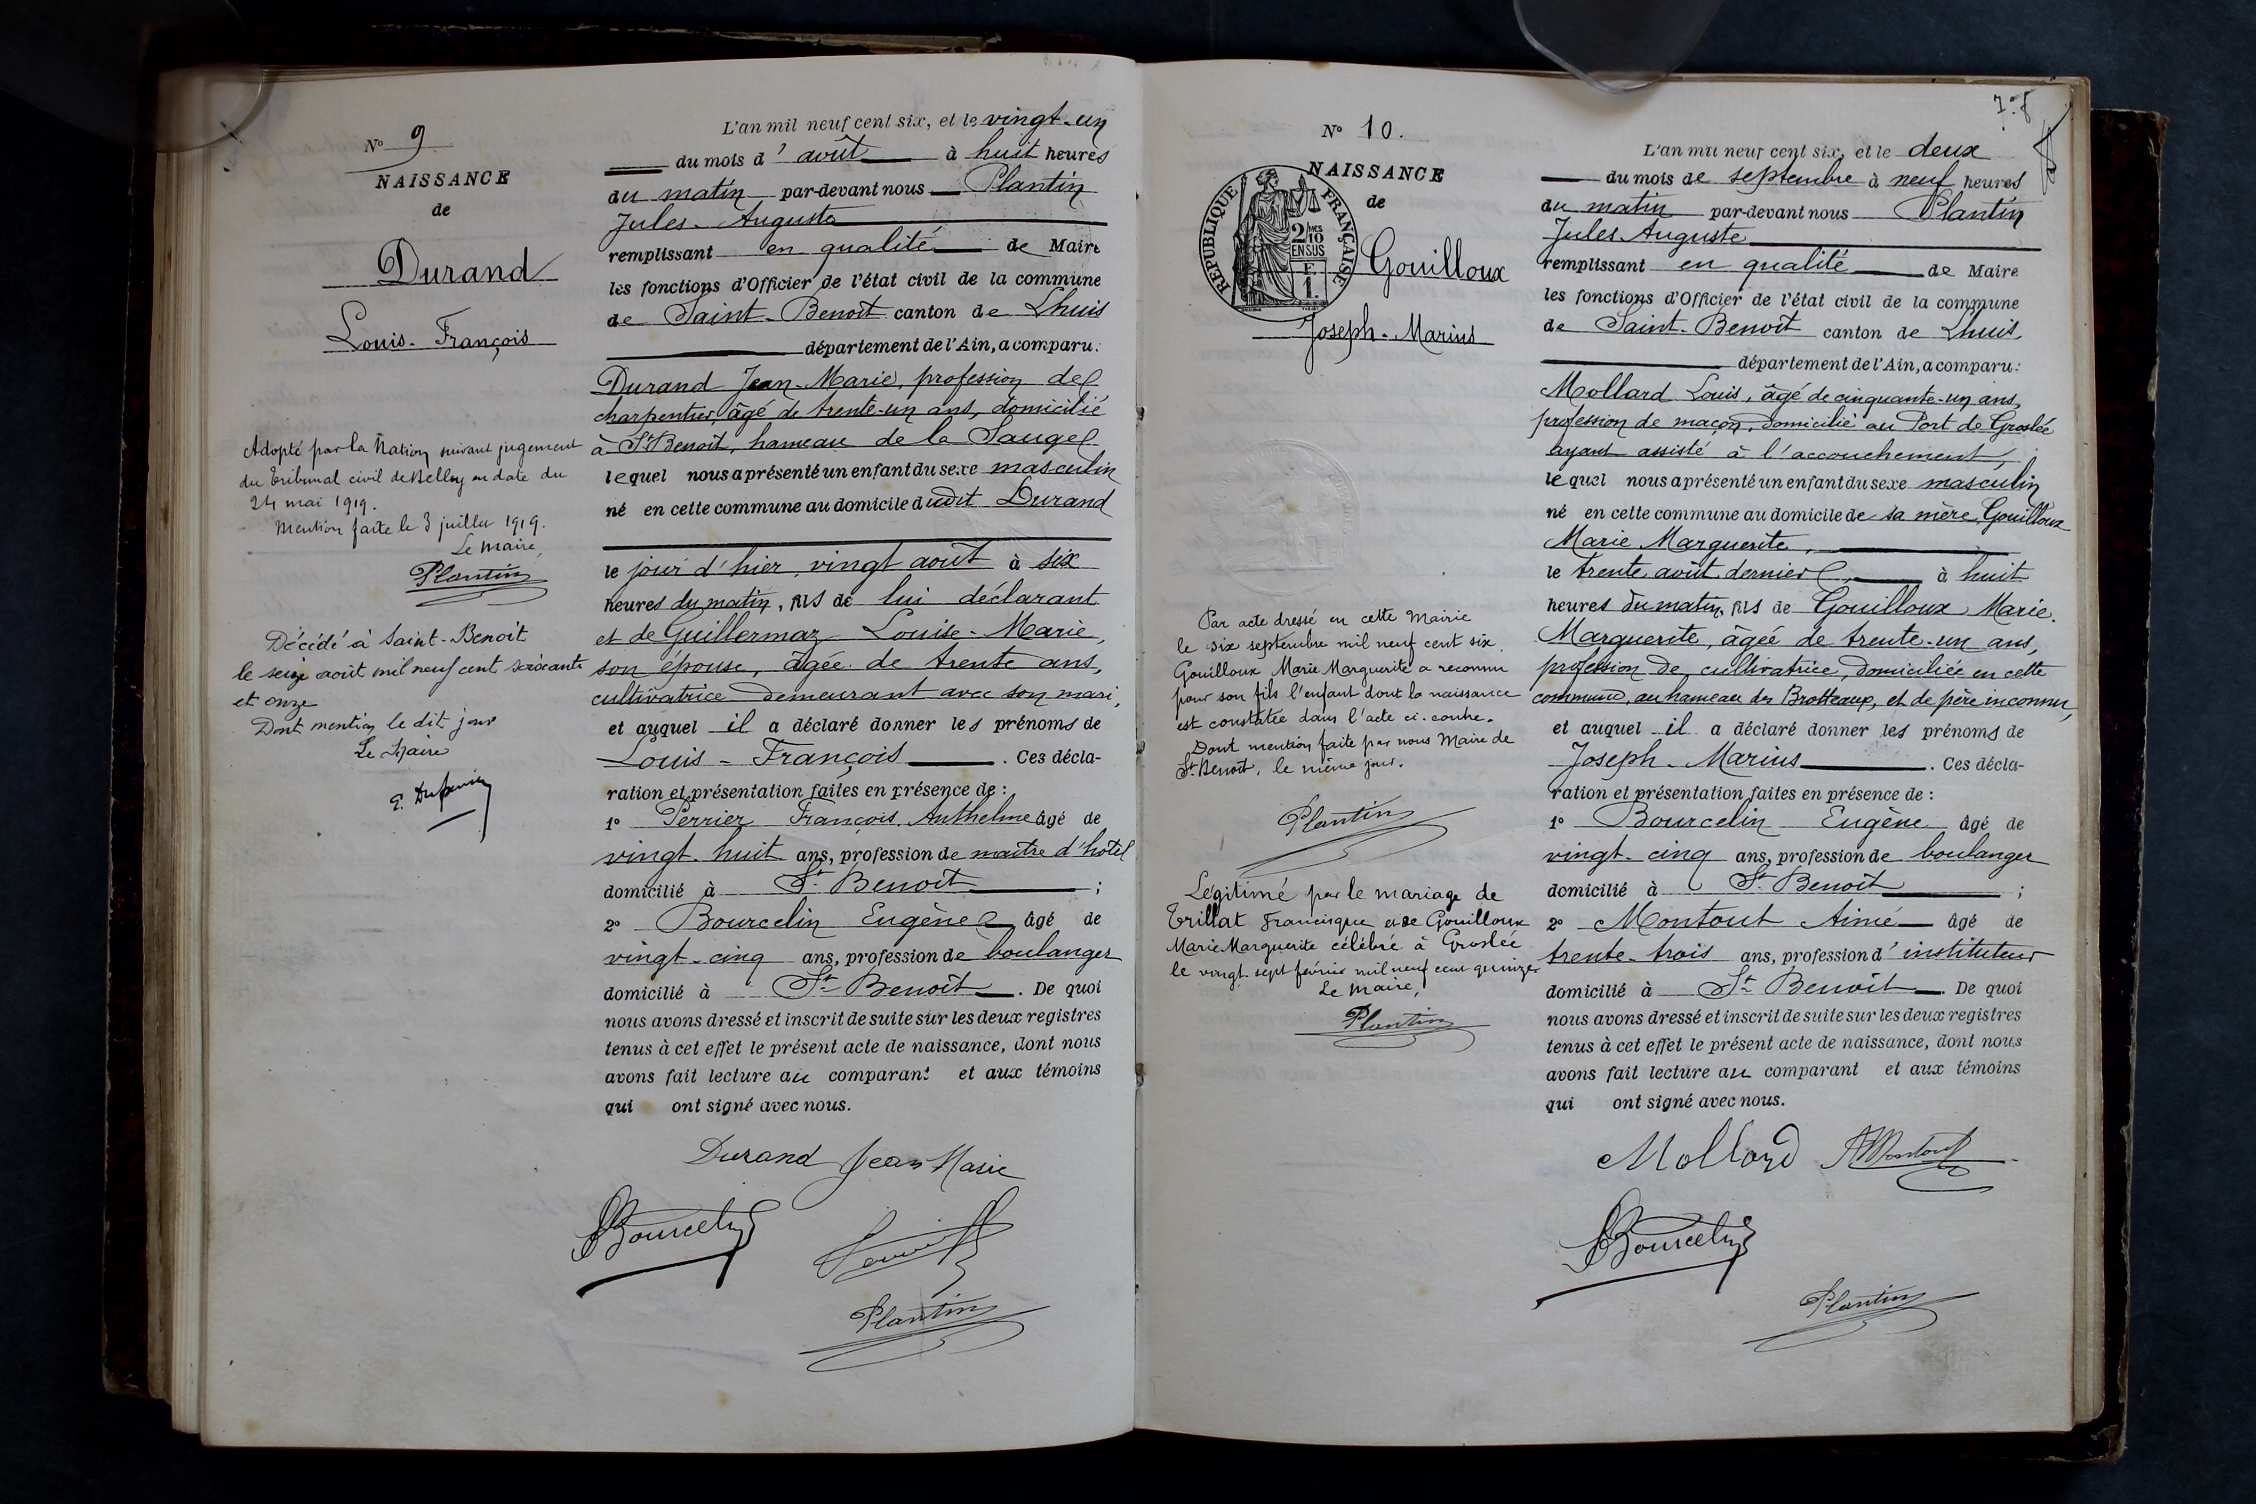 N° 9
NAISSANCE
de
Durand
Louis-François
Adopté par la Nation suivant jugement
du tribunal civil de Belley en date du
24 mai 1919.
Mention faite le 3 juillet 1919.
Le Maire,
Plantin
Décédé à Saint-Benoit
le seize août mil neuf cent soixante
et onze
Dont mention le dit jour
Le Maire
L'an mil neuf cent six, et le vingt-un
du mois d'août à huit heures
du matin par-devant nous Plantin
Jules-Auguste
remplissant en qualité de Maire
les fonctions d'Officier de l'état civil de la commune
de Saint-Benoît canton de Lhuis
département de l'Ain, a comparu:
Durand Jean-Marie, profession de
charpentier, âgé de trente-un ans, domicilié
à St Benoit, hameau de la Sauge
lequel nous a présenté un enfant du sexe masculin
né en cette commune au domicile dudit Durand
le jour d'hier, vingt août à six
heures du matin, fils de lui déclarant
et de Guillermaz Louise-Marie,
son épouse, âgée de trente ans,
cultivatrice demeurant avec son mari,
et auquel il a déclaré donner les prénoms de
Louis-François. Ces décla-
ration et présentation faites en présence de:
1° Perrier François Anthelme âgé de
vingt-huit ans, profession de maître d'hôtel
domicilié à St Benoît;
2° Bourcelin Eugène âgé de
vingt-cinq ans, profession de boulanger
domicilié à St Benoît. De quoi
nous avons dressé et inscrit de suite sur les deux registres
tenus à cet effet le présent acte de naissance, dont nous
avons fait lecture au comparant et aux témoins
qui ont signé avec nous.
Durand Jean Marie
Bourcelin
Plantin
N° 10.
NAISSANCE
de
RÉPUBLIQUE FRANÇAISE
2/10
EN SUS
F.
1.
Gouilloux
Joseph-Marius
Par acte dressé en cette Mairie
le six septembre mil neuf cent six,
Gouilloux Marie Marguerite a reconnu
pour son fils l'enfant dont la naissance
est constatée dans l'acte ci-contre.
Dont mention faite par nous Maire de
St Benoît, le même jour.
Plantin
Légitimé par le mariage de
Trillat Francisque et de Gouilloux
Marie Marguerite célébré à Groslée
le vingt sept février mil neuf cent quinze
Le Maire,
Plantin
L'an mil neuf cent six, et le deux
du mois de septembre à neuf heures
du matin par-devant nous Plantin
Jules-Auguste
remplissant en qualité de Maire
les fonctions d'Officier de l'état civil de la commune
de Saint-Benoît canton de Lhuis
département de l'Ain, a comparu:
Mollard Louis, âgé de cinquante-un ans,
profession de maçon, domicilié au Port de Groslée
ayant assisté à l'accouchement,
lequel nous a présenté un enfant du sexe masculin
né en cette commune au domicile de sa mère, Gouilloux
Marie Marguerite,
le trente août dernier, à huit
heures du matin, fils de Gouilloux Marie
Marguerite, âgée de trente-un ans,
profession de cultivatrice, domiciliée en cette
commune, au hameau des Brotteaux, et de père inconnu,
et auquel il a déclaré donner les prénoms de
Joseph-Marius. Ces décla-
ration et présentation faites en présence de:
1° Bourcelin Eugène âgé de
vingt-cinq ans, profession de boulanger
domicilié à St Benoît;
2° Montout Aimé âgé de
trente-trois ans, profession d'instituteur
domicilié à St Benoît. De quoi
nous avons dressé et inscrit de suite sur les deux registres
tenus à cet effet le présent acte de naissance, dont nous
avons fait lecture au comparant et aux témoins
qui ont signé avec nous.
Mollard AMontout
Bourcelin
Plantin